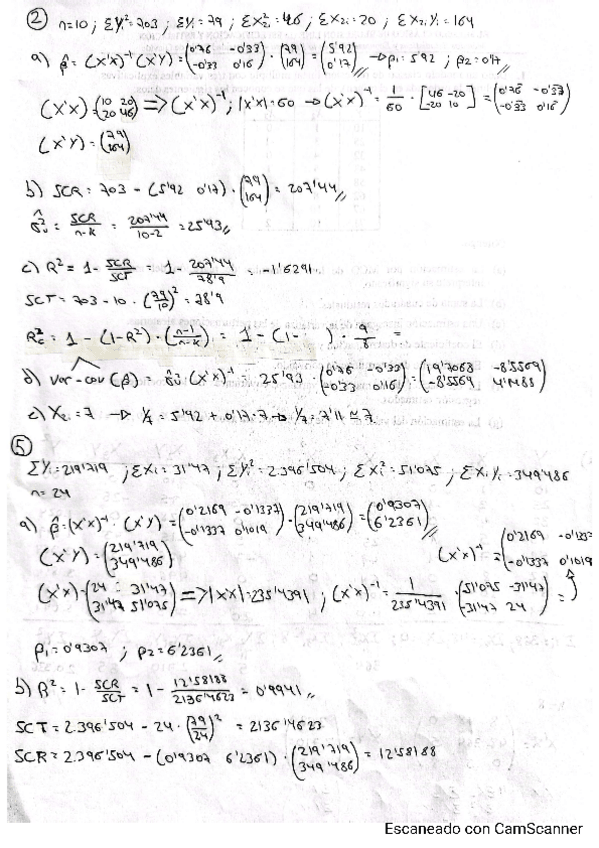 ② n=10 ; ΣYi²=703 ; ΣYi=79 ; ΣX2i²=46 ; ΣX2i=20 ; ΣX2iYi=164
a) β̂ = (X'X)⁻¹ (X'Y) = (0'76 -0'33 / -0'33 0'16) · (79 / 164) = (5'92 / 0'17) → β1=5'92 ; β2=0'17
(X'X) = (10 20 / 20 46) => (X'X)⁻¹ ; |X'X|=60 → (X'X)⁻¹ = 1/60 · [46 -20 / -20 10] = (0'76 -0'33 / -0'33 0'16)
(X'Y) = (79 / 164)
b) SCR = 703 - (5'92 0'17) · (79 / 164) = 207'44
σ̂u² = SCR/n-k = 207'44/10-2 = 25'93
c) R² = 1 - SCR/SCT = 1 - 207'44/78'9 = -1'6291
SCT = 703 - 10 · (79/10)² = 78'9
Rc² = 1 - (1-R²) · (n-1/n-k) = 1 - (1- ) · 9/8 =
d) var-cov (β) = σ̂u² · (X'X)⁻¹ = 25'93 · (0'76 -0'33 / -0'33 0'16) = (19'7068 -8'5569 / -8'5569 4'1488)
e) X2i = 7 → Y7 = 5'92 + 0'17·7 → Y7 = 7'11 ≅ 7
⑤
ΣYi=219'719 ; ΣXi=31'47 ; ΣYi²=2.396'504 ; ΣXi²=51'075 ; ΣXiYi=349'486
n=24
a) β̂ = (X'X)⁻¹ · (X'Y) = (0'2169 -0'1337 / -0'1337 0'1019) · (219'719 / 349'486) = (0'9307 / 6'2361)
(X'Y) = (219'719 / 349'486) (X'X)⁻¹ = (0'2169 -0'1337 / -0'1337 0'1019)
(X'X) = (24 31'47 / 31'47 51'075) => |X'X| = 235'4391 ; (X'X)⁻¹ = 1/235'4391 · (51'075 -31'47 / -31'47 24) =
β1 = 0'9307 ; β2 = 6'2361
b) R² = 1 - SCR/SCT = 1 - 12'58188/2136'4623 = 0'9941
SCT = 2.396'504 - 24 · (79/24)² = 2136'4623
SCR = 2.396'504 - (0'9307 6'2361) · (219'719 / 349'486) = 12'58188
Escaneado con CamScanner